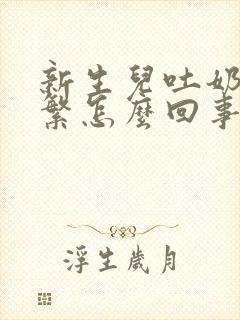 新生兒吐奶
繁怎麼回事
浮生歲月